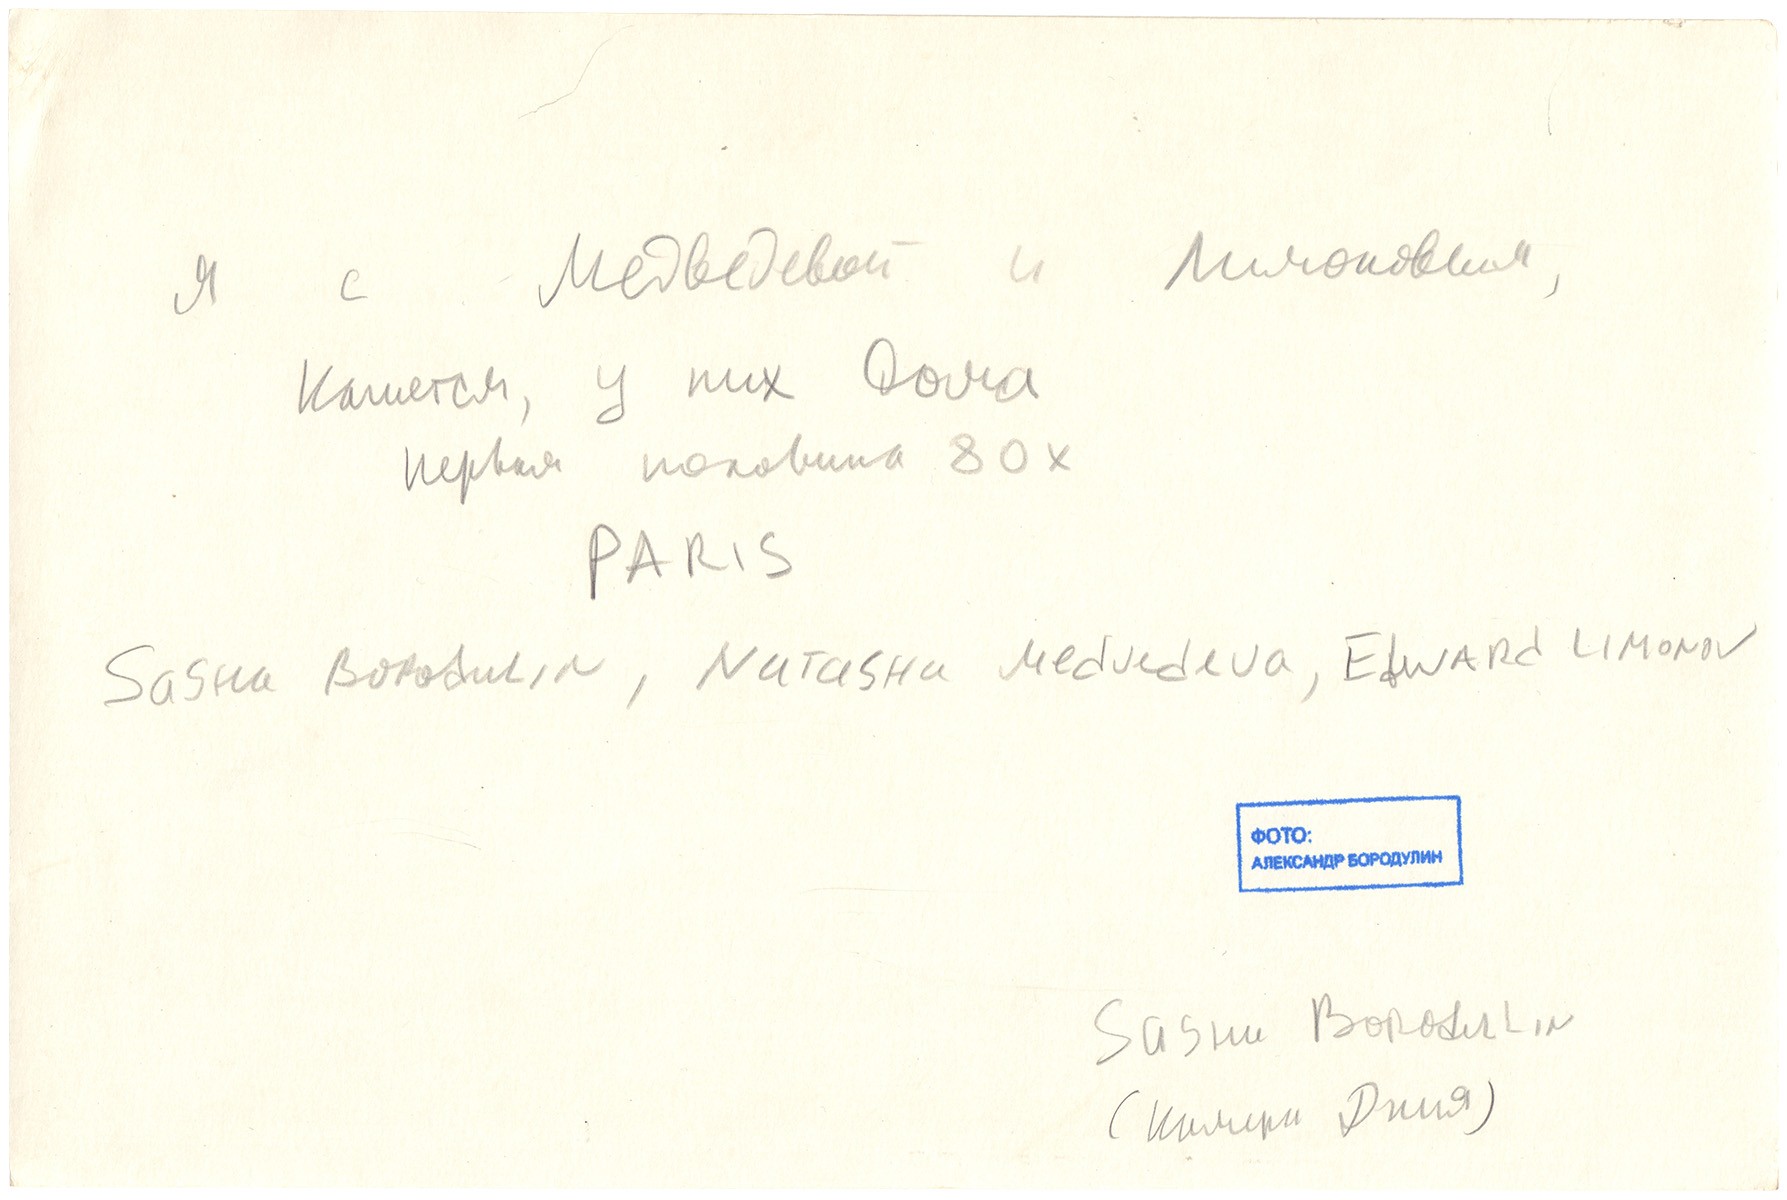 Я с Медведевой и Лимоновым,
Кажется, у них дома
первая половина 80х
PARIS
Sasha Borodulin, Natasha Medvedeva, Edward LIMONOV
ФОТО:
АЛЕКСАНДР БОРОДУЛИН
Sasha Borodulin
(Камера